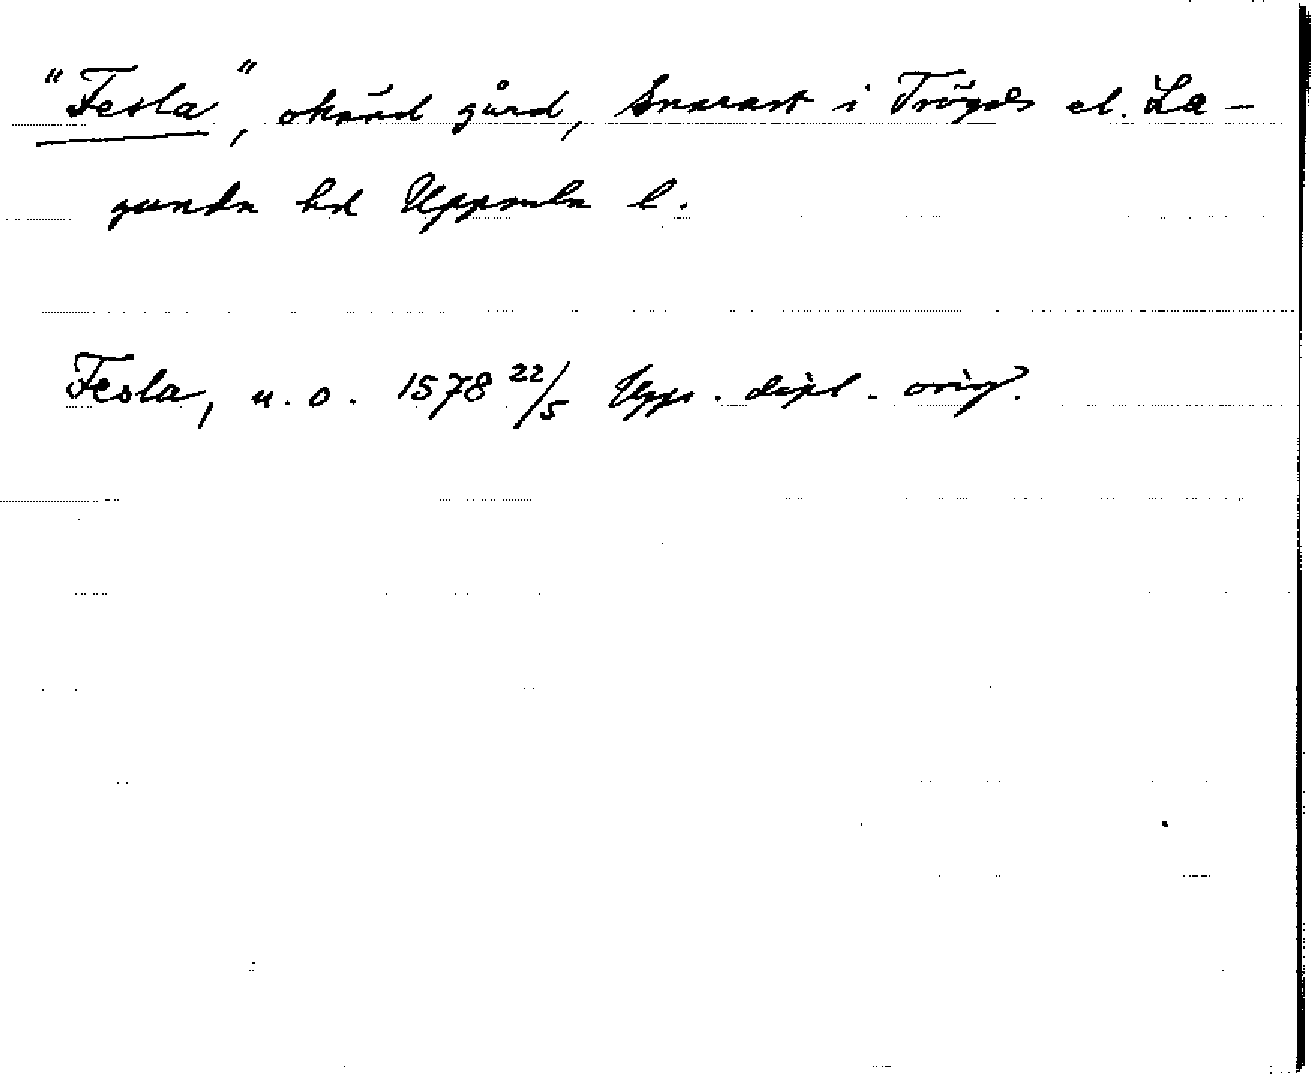 "Fesla", okänd gård, snarast i Trögds el. La-
gunda hd Uppsala l.
Fesla, u. o. 1578 22/5 Upps. dipl. orig.